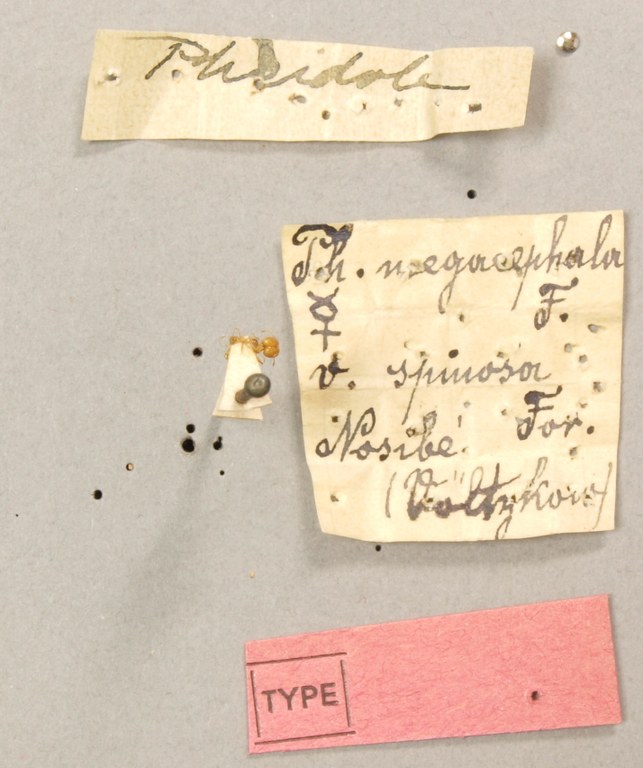 Pheidole
Ph. megacephala
☿ F.
v. spinosa
For.
Nosibé.
(Völtzkow)
TYPE